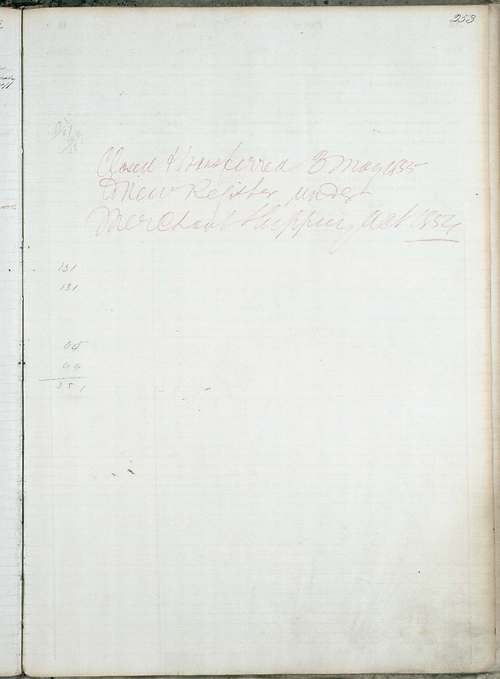 253
Closed & transferred 3 May 1855
to New Register under
Merchant Shipping Act 1854
131
131